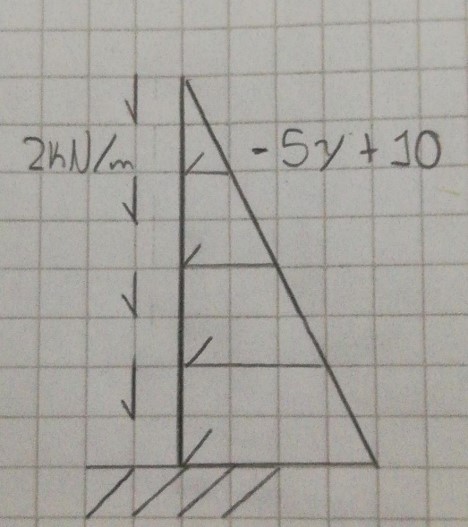 2kN/m
-5y+10